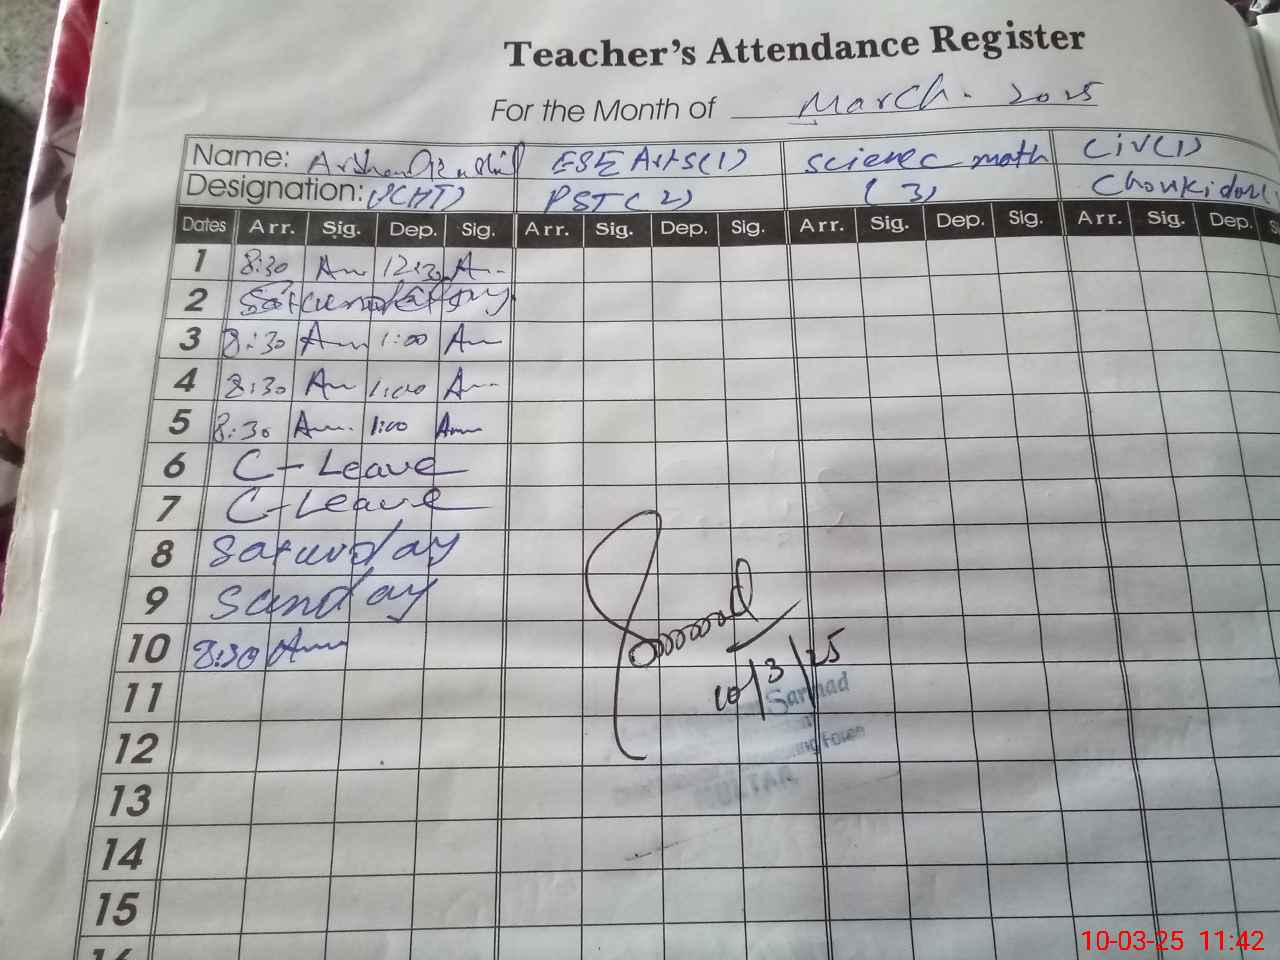 Teacher's Attendance Register
For the Month of March. 2025
Name: ESE Arts(1) Scienec math Civ(1)
Designation: PST(2) (3) Choukidar(
Dates Arr. Sig. Dep. Sig. Arr. Sig. Dep. Sig. Arr. Sig. Dep. Sig. Arr. Sig. Dep. S
1 8:30 12:30
2
3 8:30 1:00
4 8:30 1:00
5 8:30 1:00
6 C-Leave
7 C-Leave
8 Saturday
9 Sanday
10 8:30
10/3/25
11 Sarmad
12
13
14
15
16
10-03-25 11:42